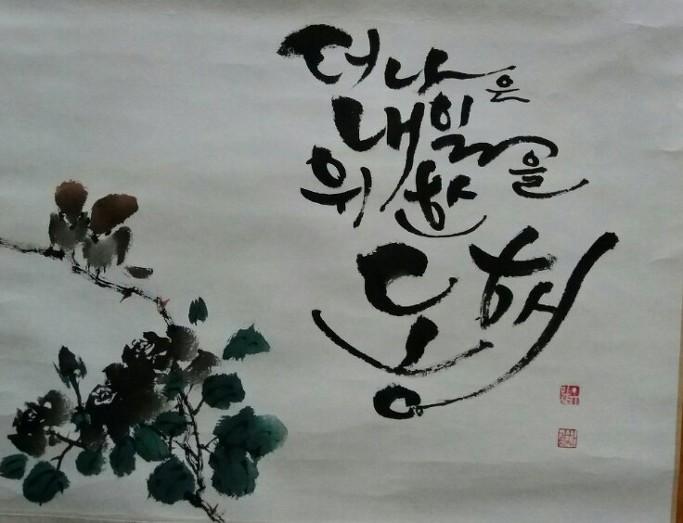 더 나은
내일을
위한
동행